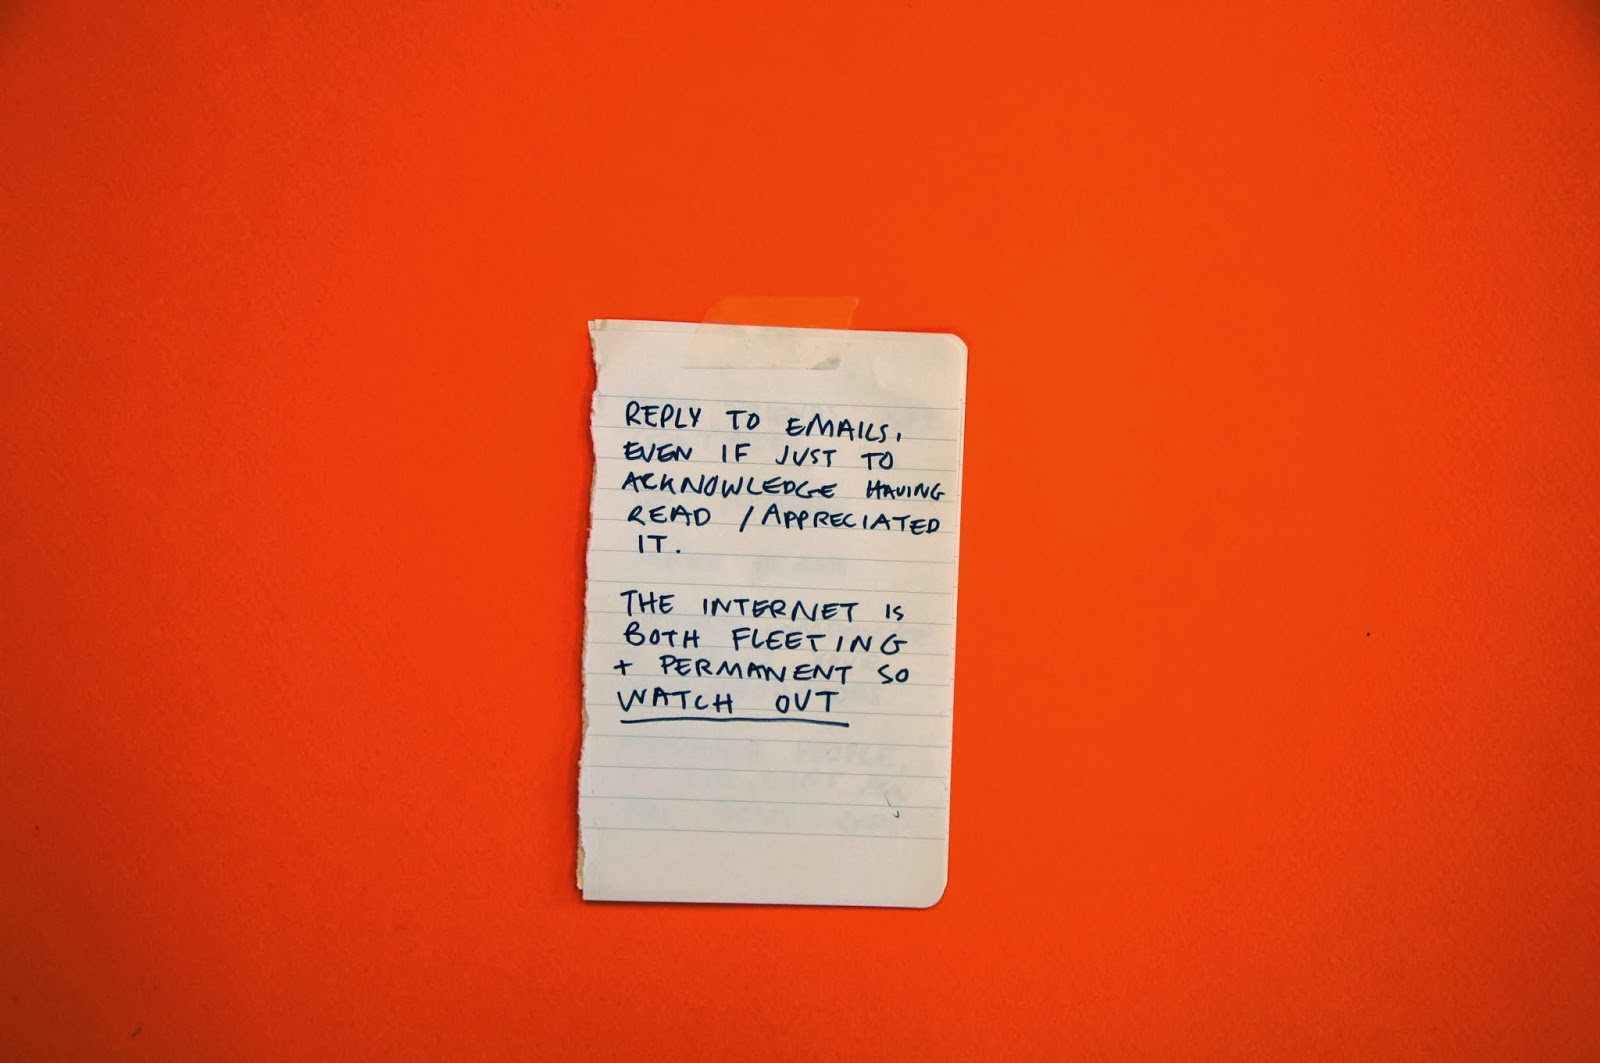 REPLY TO EMAILS,
EVEN IF JUST TO
ACKNOWLEDGE HAVING
READ / APPRECIATED
IT.
THE INTERNET IS
BOTH FLEETING
+ PERMANENT SO
WATCH OUT